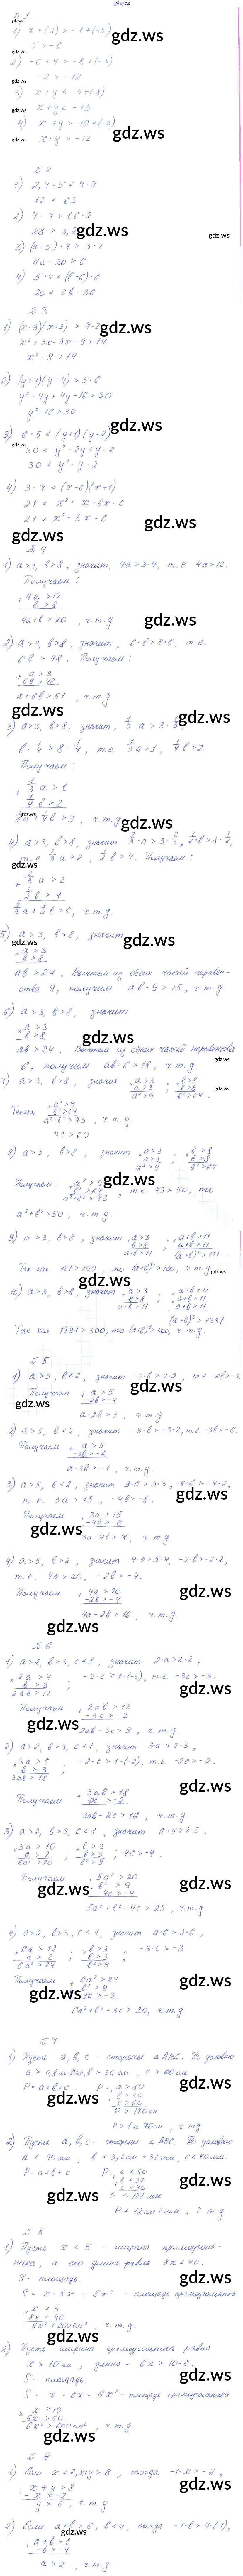 gdz.ws
№1
1) 7+(-2) > -1+(-5)
5 > -6
2) -6+4 > -8+(-3)
-2 > -12
3) x+y < -5+(-8)
x+y < -13
4) x+y > -10+(-2)
x+y > -12
№2
1) 2,4·5 < 9·7
12 < 63
2) 4·7 > 1,6·2
28 > 3,2
3) (a-5)·4 > 3·2
4a-20 > 6
4) 5·4 < (b-6)·6
20 < 6b-36
№3
1) (x-3)(x+3) > 7·2
x²+3x-3x-9 > 14
x²-9 > 14
2) (y+4)(y-4) > 5·6
y²-4y+4y-16 > 30
y²-16 > 30
3) 6·5 < (y+1)(y-2)
30 < y²-2y+y-2
30 < y²-y-2
4) 3·7 < (x-6)(x+1)
21 < x²+x-6x-6
21 < x²-5x-6
№4
1) a>3, b>8, значит 4a>3·4, т.е 4a>12.
Получаем:
+ 4a > 12
b > 8
4a+b > 20, ч.т.д
2) a>3, b>8, значит, 6·b>8·6, т.е.
6b > 48. Получаем:
+ a > 3
6b > 48
a+6b > 51, ч.т.д.
3) a>3, b>8, значит, 1/3·a > 3·1/3,
b·1/4 > 8·1/4, т.е. 1/3a>1, 1/4b>2.
Получаем:
+ 1/3 a > 1
1/4 b > 2
1/3a+1/4b > 3, ч.т.д.
4) a>3, b>8, значит 2/3·a > 3·2/3, 1/2·b > 8·1/2,
т.е 2/3a > 2, 1/2b > 4. Получаем:
+ 2/3 a > 2
1/2 b > 4
2/3a+1/2b > 6, ч.т.д
5) a>3, b>8, значит
× a > 3
b > 8
ab > 24. Вычтем из обеих частей неравен-
ства 9, получим ab-9 > 15, ч.т.д.
6) a>3, b>8, значит
× a > 3
b > 8
ab > 24. Вычтем из обеих частей неравенства
6, получим ab-6 > 18, ч.т.д.
7) a>3, b>8, значит × a>3 ; × b>8
a>3 b>8
a²>9 b²>64.
Теперь + a²>9
b²>64
a²+b²>73, ч.т.д
73>60
8) a>3, b>8, значит × a>3 ; × b>8
a>3 b>8
a²>9 b²>64
Получаем: + a²>9
b²>64
a²+b²>73, т.к 73>50, то
a²+b²>50, ч.т.д
9) a>3, b>8, значит + a>3 ; × a+b>11
b>8 a+b>11
a+b>11 (a+b)²>121
Так как 121>100, то (a+b)²>100, ч.т.д
10) a>3, b>8, значит + a>3 ; × a+b>11
b>8 a+b>11
a+b>11 a+b>11
(a+b)³>1331.
Так как 1331>300, то (a+b)³>300, ч.т.д.
№5
1) a>5, b<2, значит -2·b>-2·2, т.е -2b>-4
Получаем + a > 5
-2b > -4
a-2b > 1, ч.т.д
2) a>5, b<2, значит -3·b>-3·2, т.е. -3b>-6.
Получаем + a > 5
-3b > -6
a-3b > -1, ч.т.д
3) a>5, b<2, значит 3·a>5·3, -4·b>-4·2,
т.е. 3a>15, -4b>-8.
Получаем + 3a > 15
-4b > -8
3a-4b > 7, ч.т.д.
4) a>5, b>2, значит 4·a>5·4, -2·b>-2·2,
т.е. 4a>20, -2b>-4.
Получаем + 4a > 20
-2b > -4
4a-2b > 16, ч.т.д.
№6
1) a>2, b>3, c<1, значит 2·a>2·2,
× 2a > 4
b > 3 ; -3·c > 1·(-3), т.е. -3c>-3.
2ab > 12
Получаем + 2ab > 12
-3c > -3
2ab-3c > 9, ч.т.д.
2) a>2, b>3, c<1, значит 3a>2·3,
× 3a > 6
b > 3 ; -2·c > 1·(-2), т.е. -2c>-2.
3ab > 18
Получаем + 3ab > 18
-2c > -2
3ab-2c > 16, ч.т.д.
3) a>2, b>3, c<1, значит a·5>2·5,
× 5a > 10 ; × b > 3 ; -4c > -4.
a > 2 b > 3
5a² > 20 b² > 9
Получаем + 5a² > 20
b² > 9
-4c > -4
5a²+b²-4c > 25, ч.т.д.
4) a>2, b>3, c<1, значит a·6>2·6,
× 6a > 12 ; × b > 3 ; -3·c > -3
a > 2 b > 3
6a² > 24 b² > 9
Получаем + 6a² > 24
b² > 9
-3c > -3
6a²+b²-3c > 30, ч.т.д.
№7
1) Пусть a, b, c - стороны ΔABC. По условию
b > 30 см, c > 60 см
P=a+b+c P: + a > 80
b > 30
c > 60
P > 170 см
P > 1 м 70 см, ч.т.д
2) Пусть a, b, c - стороны Δ ABC. По условию
a < 50 мм, b < 3,2 см = 32 мм, c < 40 мм.
P=a+b+c P: + a < 50
b < 32
c < 40
P < 122 мм
P < 12 см 2 мм, ч.т.д
№8
1) Пусть x < 5 - ширина прямоуголь-
ника, а его длина равна 8x < 40.
S - площадь
S = x·8x = 8x² - площадь прямоугольника
× x < 5
8x < 40
8x² < 200 см², ч.т.д.
2) Пусть ширина прямоугольника равна
x > 10 см, длина - 6x > 10·6.
S - площадь
S = x·6x = 6x² - площадь прямоугольника
× x > 10
6x > 60
6x² > 600 см², ч.т.д.
№9
1) Если x<2, x+y>8, тогда -1·x > -2,
+ x+y > 8
-x > -2
y > 6, ч.т.д
2) Если a+b>6, b<4, тогда -1·b > 4·(-1),
+ a+b > 6
-b > -4
a > 2, ч.т.д